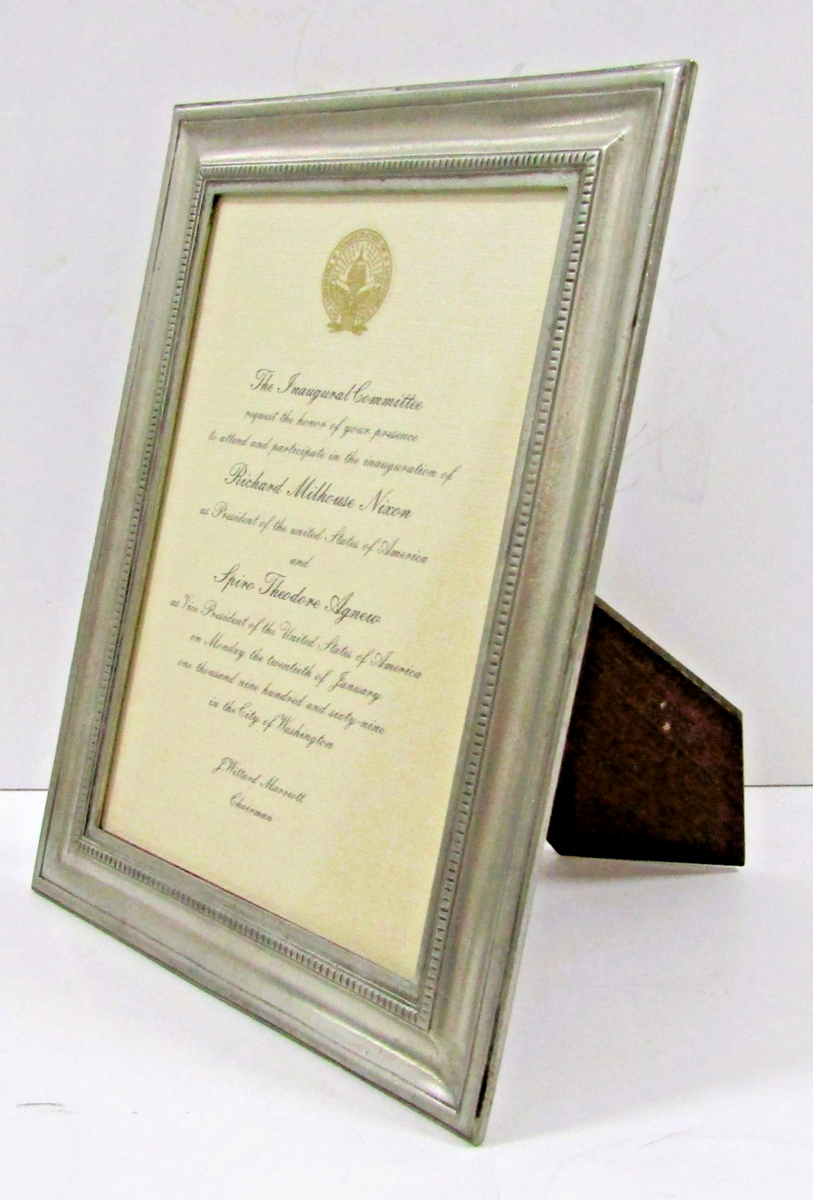 The Inaugural Committee
request the honor of your presence
to attend and participate in the inauguration of
Richard Milhouse Nixon
as President of the united States of America
and
Spiro Theodore Agnew
as Vice President of the United States of America
on Monday the twentieth of January
one thousand nine hundred and sixty-nine
in the City of Washington
J Willard Marriott
Chairman